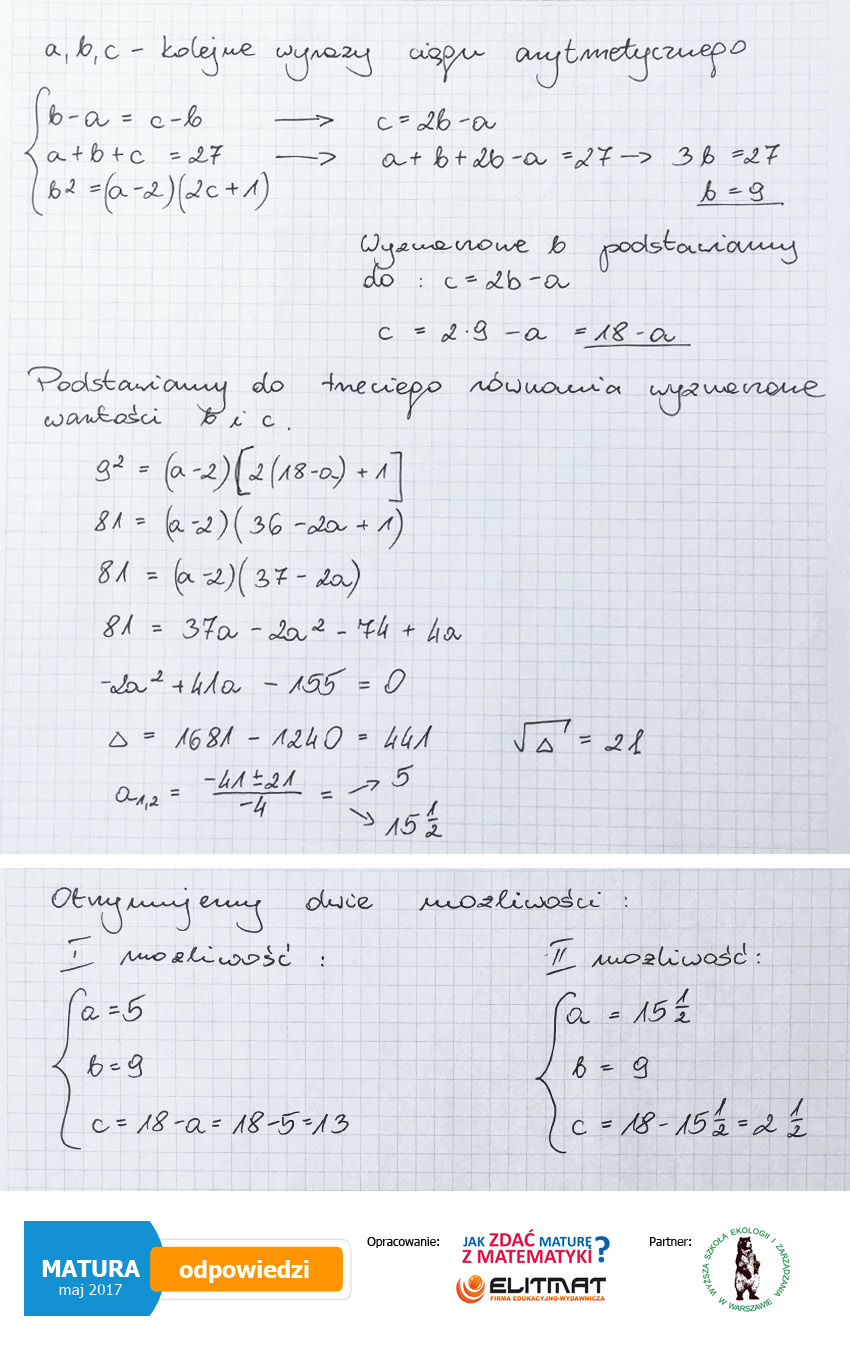 a, b, c – kolejne wyrazy ciągu arytmetycznego
b-a = c-b → c = 2b-a
a+b+c = 27 → a+b+2b-a = 27 → 3b = 27
b² = (a-2)(2c+1) b = 9
Wyznaczone b podstawiamy
do : c = 2b-a
c = 2·9 - a = 18-a
Podstawiamy do trzeciego równania wyznaczone
wartości b i c.
9² = (a-2)[2(18-a)+1]
81 = (a-2)(36-2a+1)
81 = (a-2)(37-2a)
81 = 37a - 2a² - 74 + 4a
-2a² + 41a - 155 = 0
Δ = 1681 - 1240 = 441 √Δ = 21
a₁,₂ = (-41±21)/(-4) = → 5
↘ 15 1/2
Otrzymujemy dwie możliwości :
I możliwość : II możliwość :
a = 5 a = 15 1/2
b = 9 b = 9
c = 18-a = 18-5 = 13 c = 18 - 15 1/2 = 2 1/2
MATURA
maj 2017
odpowiedzi
Opracowanie:
JAK ZDAĆ MATURĘ
Z MATEMATYKI?
ELITMAT
FIRMA EDUKACYJNO-WYDAWNICZA
Partner:
WYŻSZA SZKOŁA EKOLOGII I ZARZĄDZANIA
W WARSZAWIE